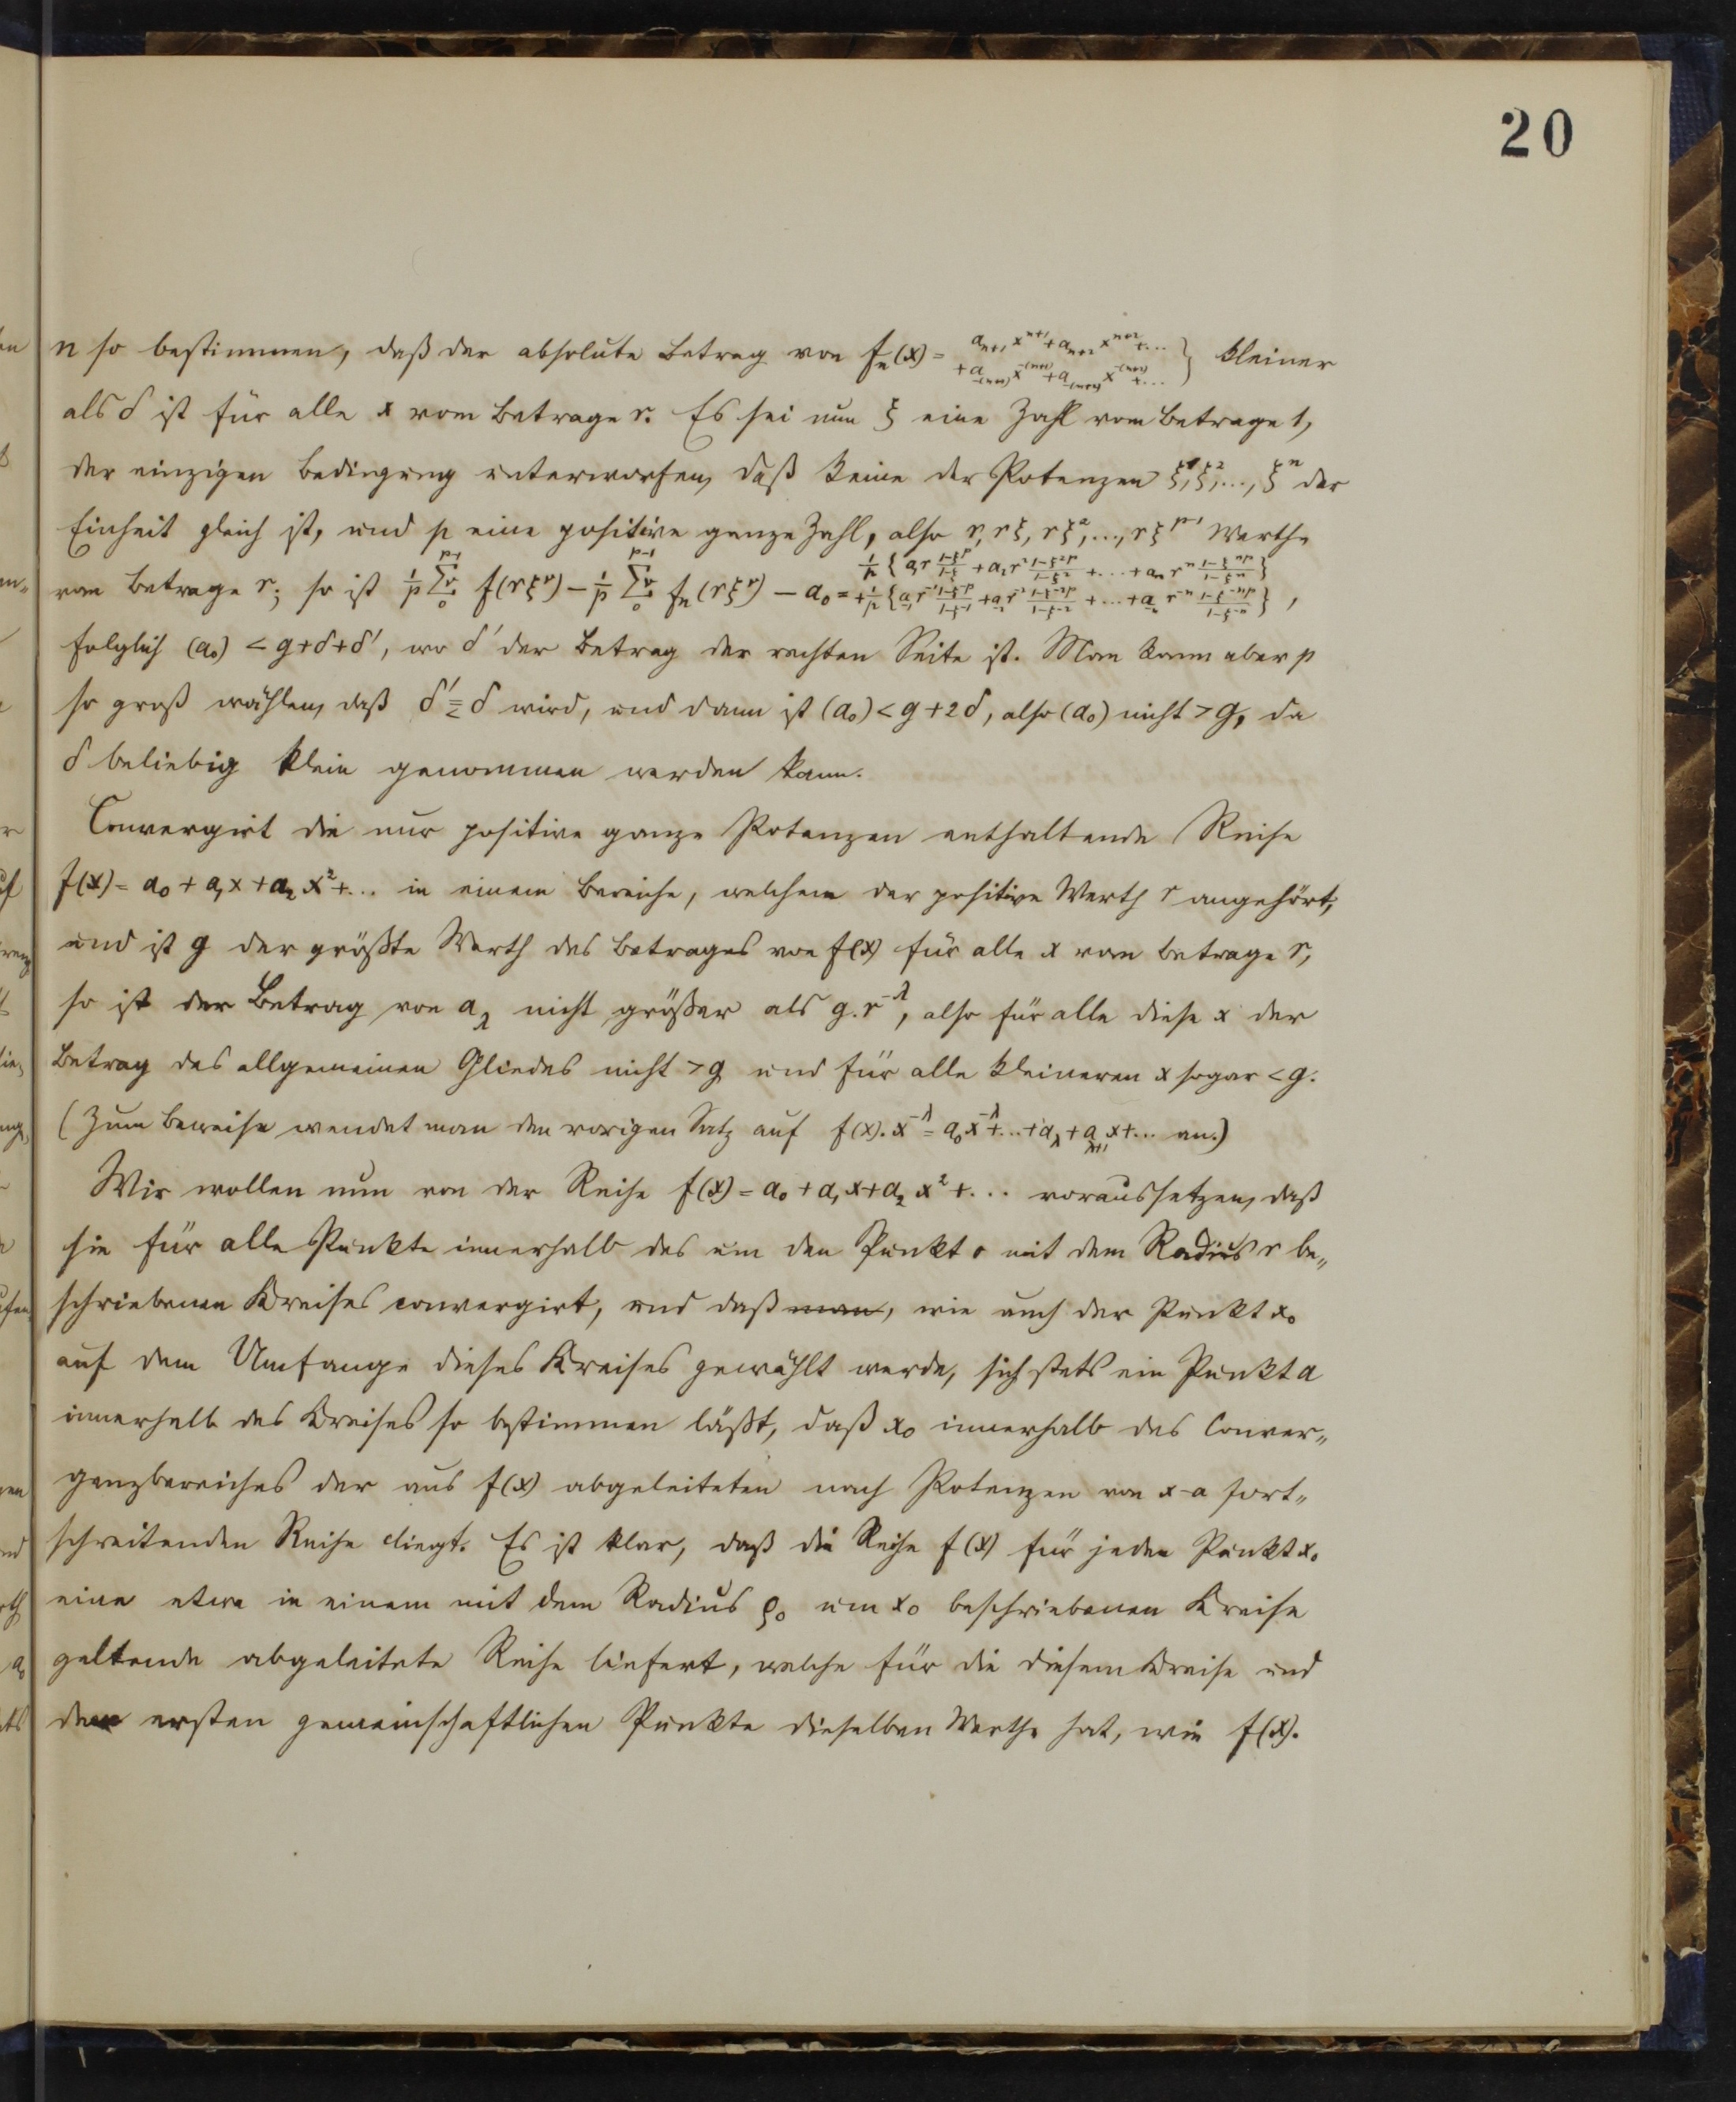 20
n so bestimmen, daß der absolute Betrag von fₙ(x) = { aₙ₊₁xⁿ⁺¹ + aₙ₊₂xⁿ⁺² + ... + a₋₍ₙ₊₁₎x⁻⁽ⁿ⁺¹⁾ + a₋₍ₙ₊₂₎x⁻⁽ⁿ⁺²⁾ + ... } kleiner
als δ ist für alle x vom Betrage r. Es sei nun ξ eine Zahl vom Betrage 1,
der einzigen Bedingung unterworfen, daß keine der Potenzen ξ¹, ξ², ..., ξⁿ der
Einheit gleich ist, und p eine positive ganze Zahl, also r, rξ, rξ², ..., rξᵖ⁻¹ Werthe
vom Betrage r; so ist 1/p Σᵥ₀ᵖ⁻¹ f(rξᵛ) − 1/p Σᵥ₀ᵖ⁻¹ fₙ(rξᵛ) − a₀ = 1/p {a₁r (1−ξᵖ)/(1−ξ) + a₂r² (1−ξ²ᵖ)/(1−ξ²) + ... + aₙrⁿ (1−ξⁿᵖ)/(1−ξⁿ)} + 1/p {a₋₁r⁻¹ (1−ξ⁻ᵖ)/(1−ξ⁻¹) + a₋₂r⁻² (1−ξ⁻²ᵖ)/(1−ξ⁻²) + ... + a₋ₙr⁻ⁿ (1−ξ⁻ⁿᵖ)/(1−ξ⁻ⁿ)},
folglich (a₀) < g+δ+δ', wo δ' der Betrag der rechten Seite ist. Man kann aber p
so groß wählen, daß δ' ≦ δ wird, und dann ist (a₀) < g + 2δ, also (a₀) nicht > g, da
δ beliebig klein genommen werden kann.
Convergirt die nur positive ganze Potenzen enthaltende Reihe
f(x) = a₀ + a₁x + a₂x² + ... in einem Bereiche, welchem der positive Werth r angehört,
und ist g der größte Werth des Betrages von f(x) für alle x vom Betrage r,
so ist der Betrag von a_λ nicht größer als g.r^−λ, also für alle diese x der
Betrag des allgemeinen Gliedes nicht > g und für alle kleineren x sogar < g.
(Zum Beweise wendet man den vorigen Satz auf f(x).x^−λ = a₀x^−λ + ... + a_λ + a_λ+1 x + ... an.)
Wir wollen nun von der Reihe f(x) = a₀ + a₁x + a₂x² + ... voraussetzen, daß
sie für alle Punkte innerhalb des um den Punkt o mit dem Radius r be„
schriebenen Kreises convergirt, und daß man, wie auch der Punkt x₀
auf dem Umfange dieses Kreises gewählt werde, sich stets ein Punkt a
innerhalb des Kreises so bestimmen läßt, daß x₀ innerhalb des Conver„
genzbereiches der aus f(x) abgeleiteten nach Potenzen von x−a fort„
schreitenden Reihe liegt. Es ist klar, daß die Reihe f(x) für jeden Punkt x₀
eine etwa in einem mit dem Radius ρ₀ um x₀ beschriebenen Kreise
geltende abgeleitete Reihe liefert, welche für die diesem Kreise und
dem ersten gemeinschaftlichen Punkte dieselben Werthe hat, wie f(x).